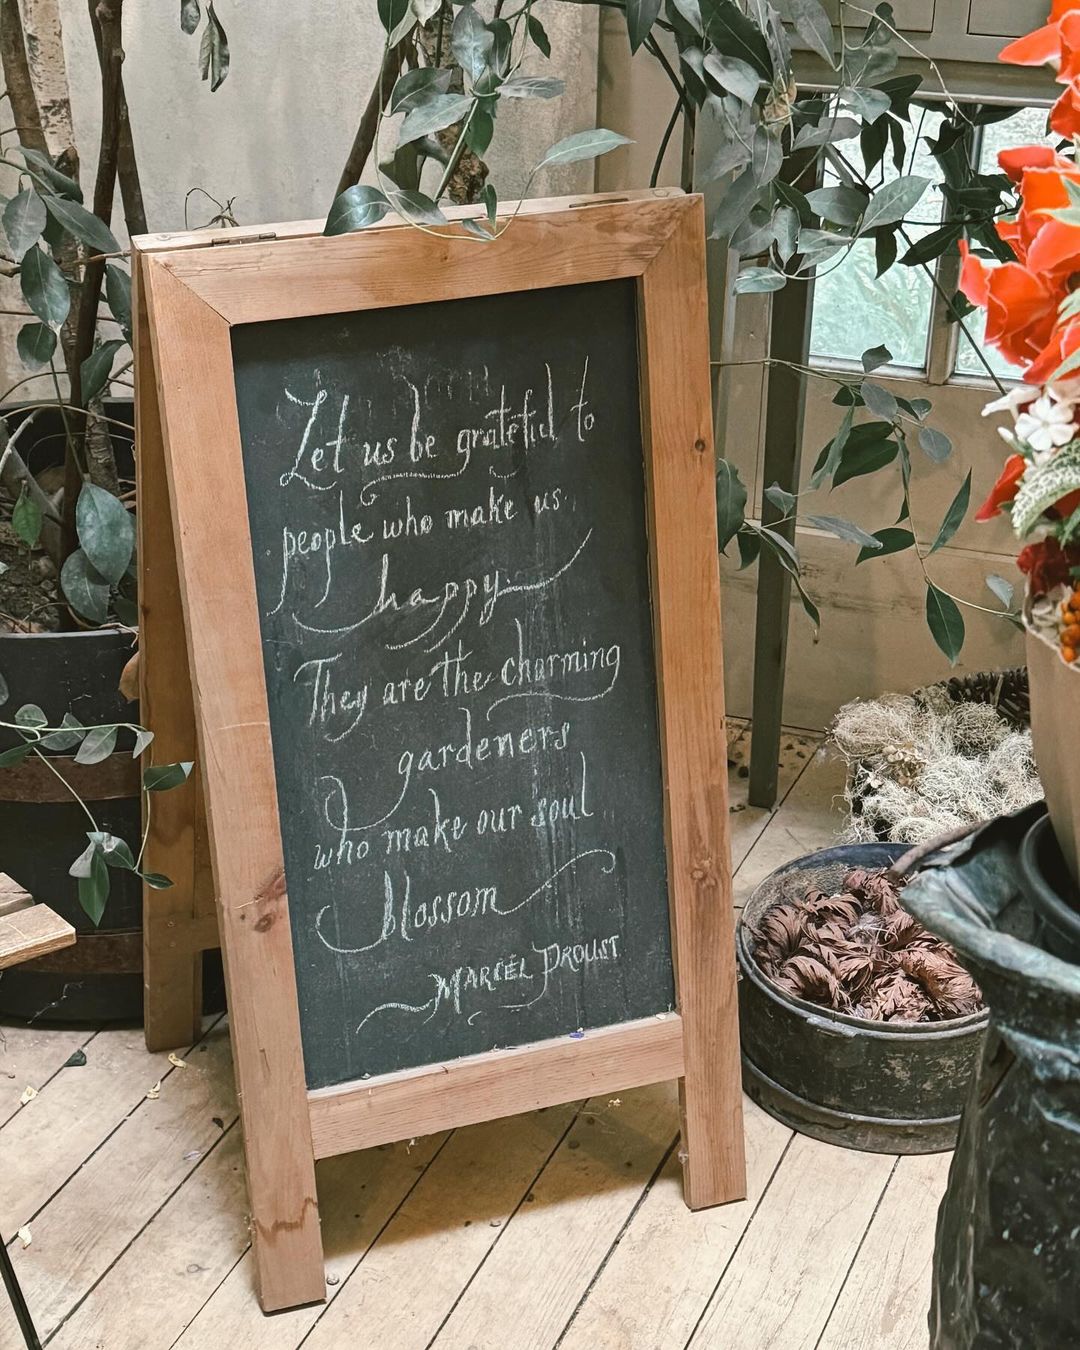 Let us be grateful to
people who make us
happy.
They are the charming
gardeners
who make our soul
blossom
MARCEL PROUST